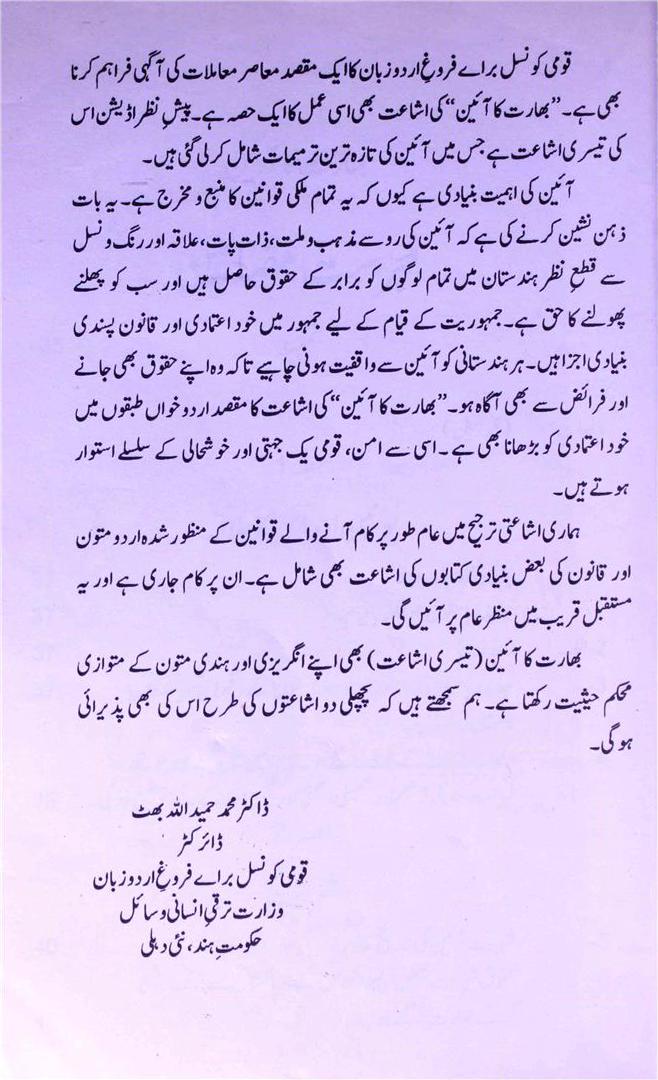 قومی کونسل براے فروغِ اردو زبان کا ایک مقصد معاصر معاملات کی آگہی فراہم کرنا
بھی ہے۔ ”بھارت کا آئین“ کی اشاعت بھی اسی عمل کا ایک حصہ ہے۔ پیشِ نظر اڈیشن اس
کی تیسری اشاعت ہے جس میں آئین کی تازہ ترین ترمیمات شامل کرلی گئی ہیں۔
آئین کی اہمیت بنیادی ہے کیوں کہ یہ تمام ملکی قوانین کا منبع و مخرج ہے۔ یہ بات
ذہن نشین کرنے کی ہے کہ آئین کی رو سے مذہب و ملت، ذات پات، علاقہ اور رنگ و نسل
سے قطعِ نظر ہندستان میں تمام لوگوں کو برابر کے حقوق حاصل ہیں اور سب کو پھلنے
پھولنے کا حق ہے۔ جمہوریت کے قیام کے لیے جمہور میں خود اعتمادی اور قانون پسندی
بنیادی اجزا ہیں۔ ہر ہندستانی کو آئین سے واقفیت ہونی چاہیے تاکہ وہ اپنے حقوق بھی جانے
اور فرائض سے بھی آگاہ ہو۔ ”بھارت کا آئین“ کی اشاعت کا مقصد اردو خواں طبقوں میں
خود اعتمادی کو بڑھانا بھی ہے۔ اسی سے امن، قومی یک جہتی اور خوشحالی کے سلسلے استوار
ہوتے ہیں۔
ہماری اشاعتی ترجیح میں عام طور پر کام آنے والے قوانین کے منظور شدہ اردو متون
اور قانون کی بعض بنیادی کتابوں کی اشاعت بھی شامل ہے۔ ان پر کام جاری ہے اور یہ
مستقبل قریب میں منظر عام پر آئیں گی۔
بھارت کا آئین (تیسری اشاعت) بھی اپنے انگریزی اور ہندی متون کے متوازی
محکم حیثیت رکھتا ہے۔ ہم سمجھتے ہیں کہ پچھلی دو اشاعتوں کی طرح اس کی بھی پذیرائی
ہوگی۔
ڈاکٹر محمد حمید اللہ بھٹ
ڈائرکٹر
قومی کونسل براے فروغِ اردو زبان
وزارت ترقیِ انسانی وسائل
حکومتِ ہند، نئی دہلی